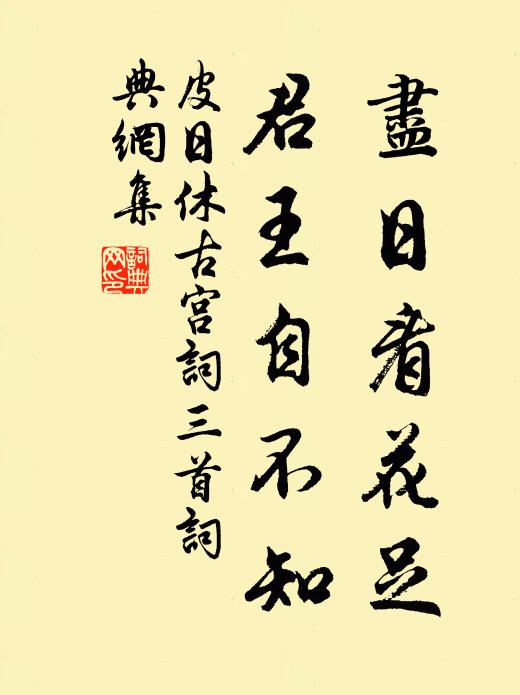 盡日看花足
君王自不知
皮日休古宫詞三首詞
典網集
詞典
网印